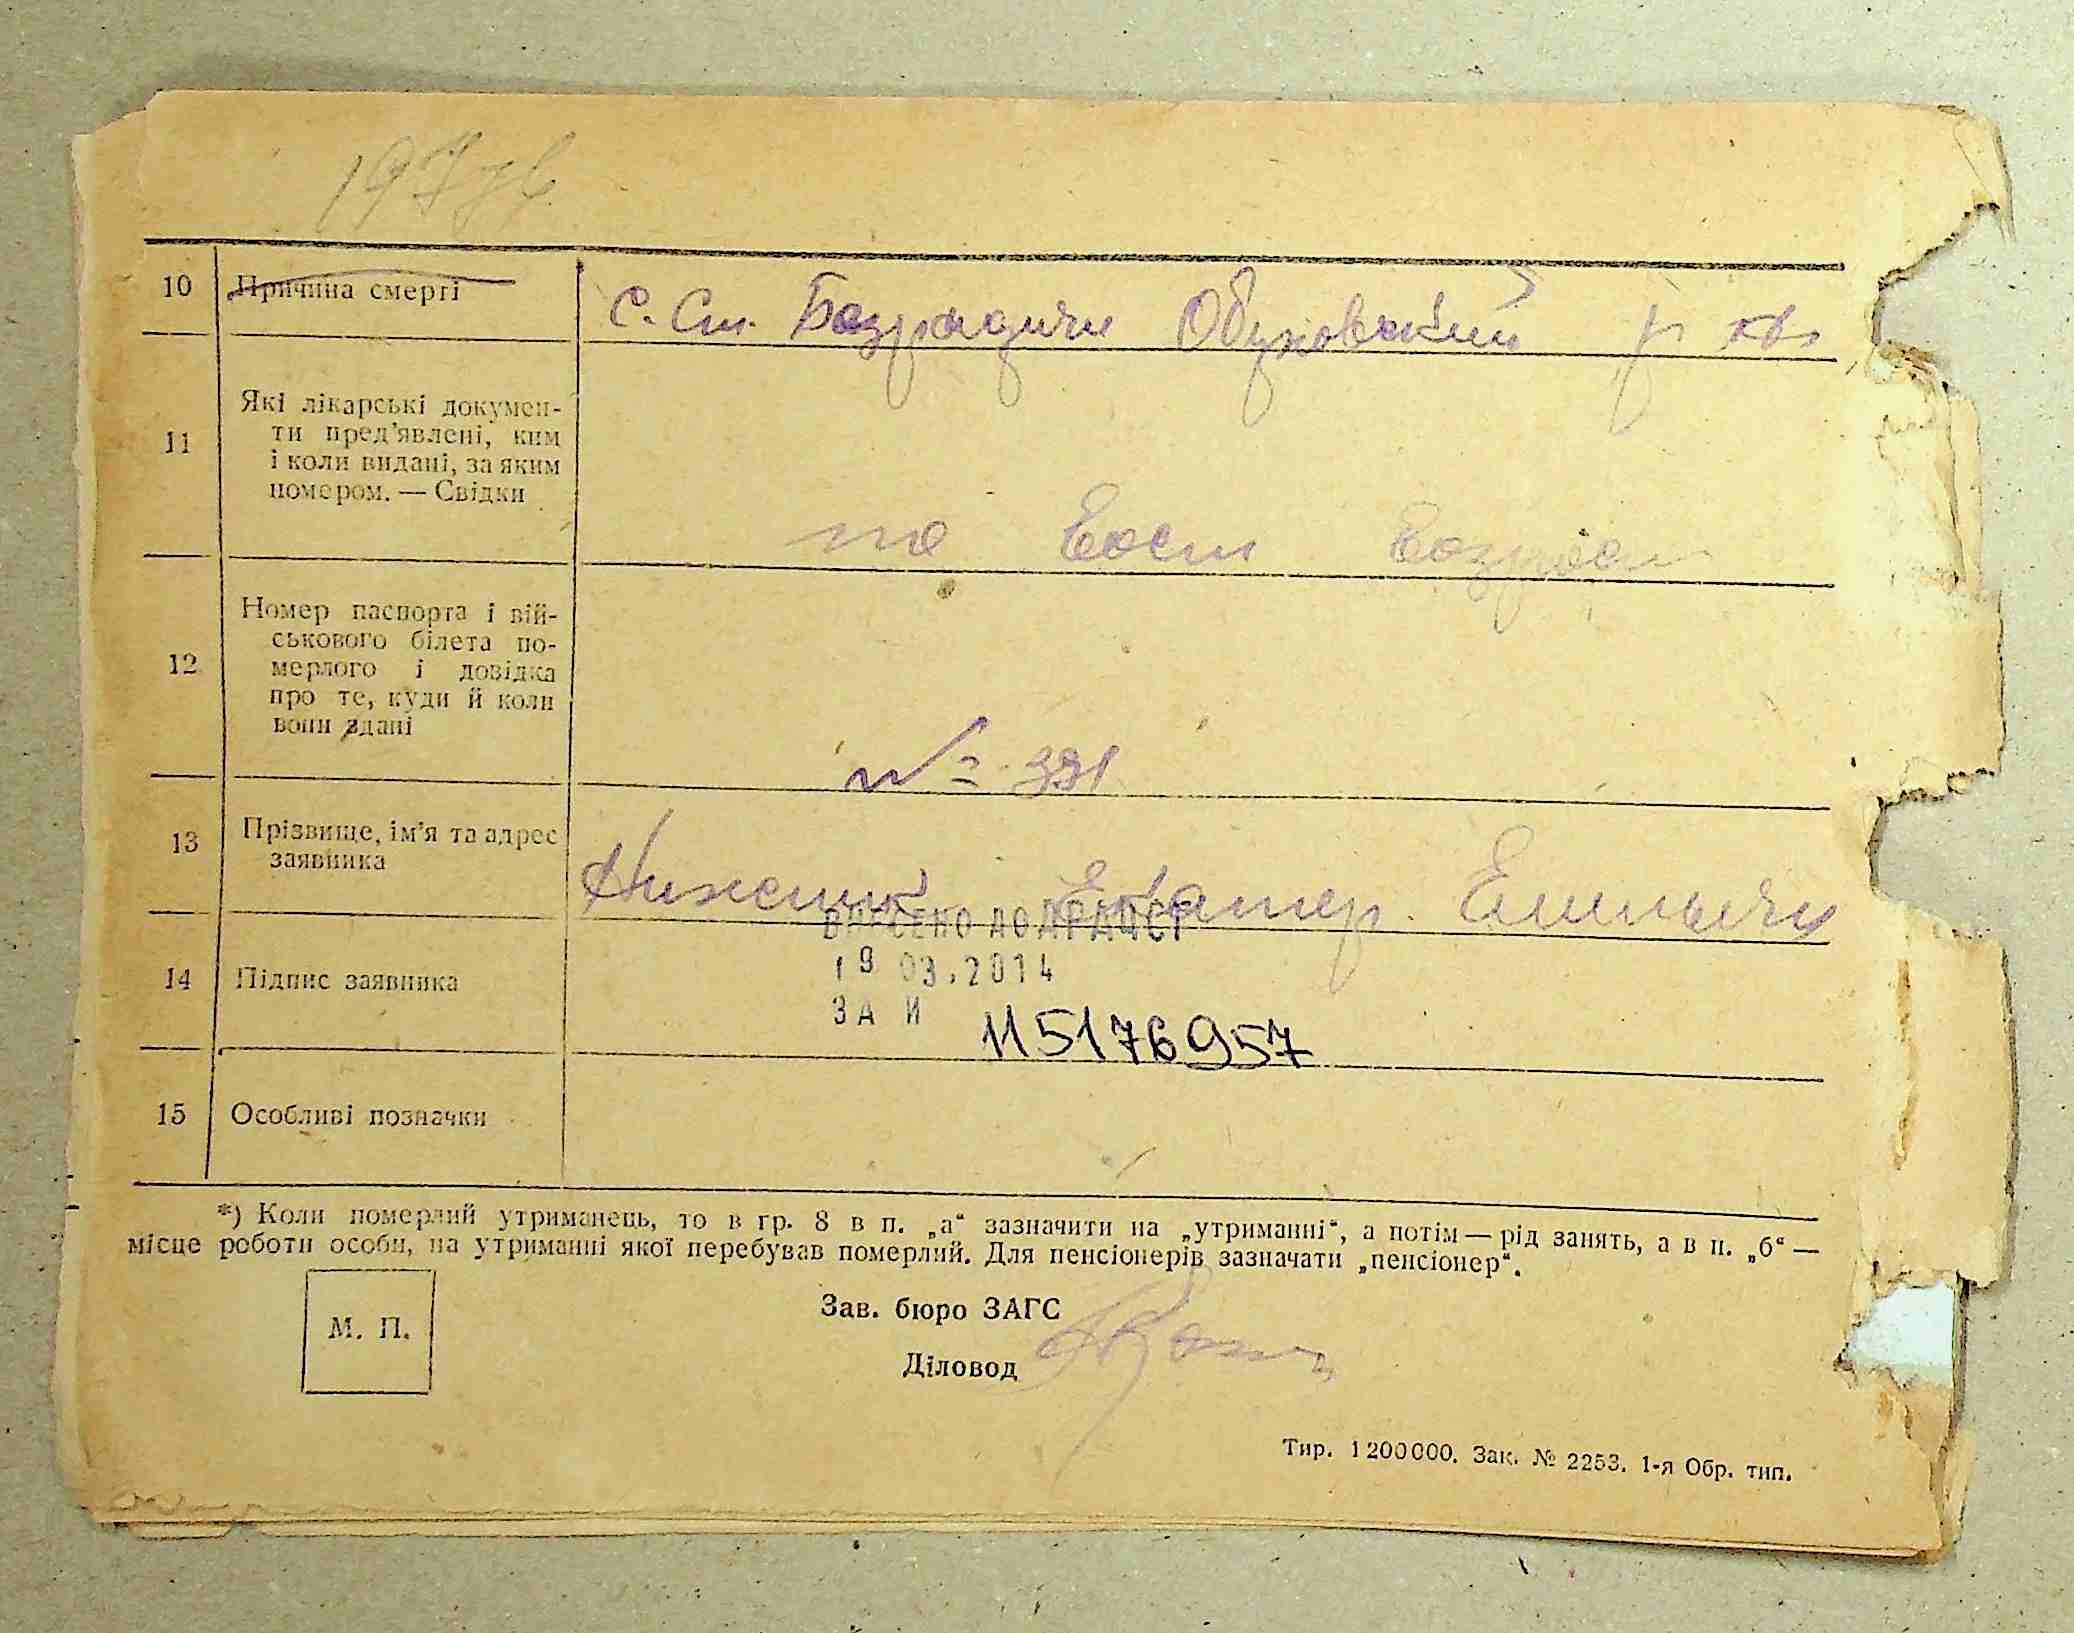 10 Причина смерті
С. Ст. Безрадичи Обуховский р
11 Які лікарські докумен-
ти пред'явлені, ким
і коли видані, за яким
номером. — Свідки
по
12 Номер паспорта і вій-
ськового білета по-
мерлого і довідка
про те, куди й коли
вони здані
№ 391
13 Прізвище, ім'я та адрес
заявника
Екатер.
ВНЕСЕНО ДО ДРАЦСГ
19 03.2014
14 Підпис заявника
ЗА И 115176957
15 Особливі позначки
*) Коли померлий утриманець, то в гр. 8 в п. „а“ зазначити на „утриманні“, а потім — рід занять, а в п. „б“ —
місце роботи особи, на утриманні якої перебував померлий. Для пенсіонерів зазначати „пенсіонер“.
М. П.
Зав. бюро ЗАГС
Діловод
Тир. 1 200 000. Зак. № 2253. 1-я Обр. тип.